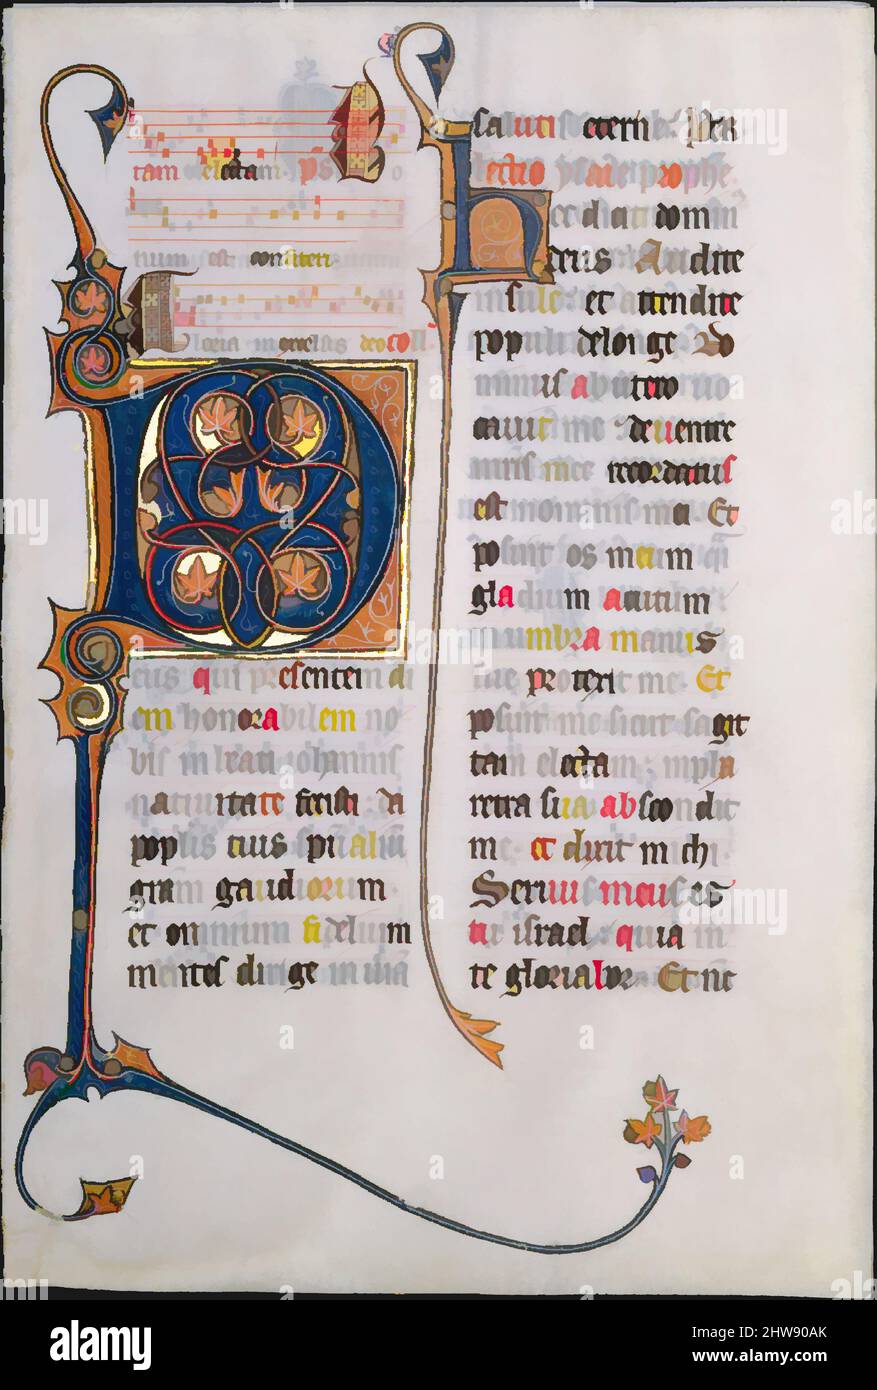 tam electam. ps
num est confiteri
Gloria in excelsis deo coll
Deus qui presentem di
em honorabilem no
bis in beati iohannis
natiuitate fecisti da
populis tuis spualium
gram gaudiorum
et omnium fidelium
mentes dirige in uiam
salutis eterne per
lectio ysaie prophe
hec dicit domin
deus Audite
insule et attendite
populi de longe Do
minus ab utero uo
cauit me de uentre
matris mee recordatus
est nominis mei Et
posuit os meum
gladium acutum
in umbra manus
sue protexit me. Et
posuit me sicut sagit
tam electam in pha
retra sua abscondit
me. et dixit michi
Seruus meus es
tu israel quia in
te gloriabor Et nc
alamy
Image ID: 2HW90AK
www.alamy.com